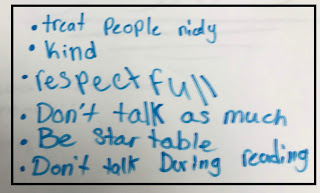 • treat People nicly
• kind
• respectfull
• Don't talk as much
• Be Star table
• Don't talk During reading